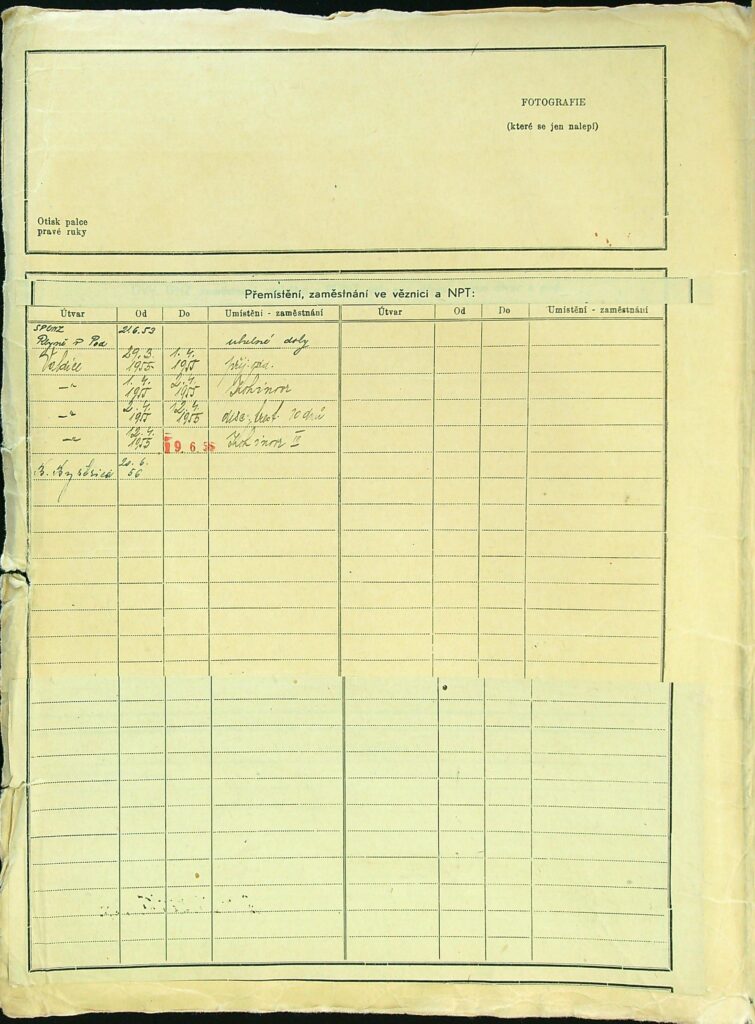 FOTOGRAFIE
(které se jen nalepí)
Otisk palce
pravé ruky
Přemístění, zaměstnání ve věznici a NPT:
Útvar Od Do Umístění - zaměstnání Útvar Od Do Umístění - zaměstnání
21.6.53
uhelné doly
Valdice 29.3. 1955 1.4. 1955
—"— 1.4. 1955 2.4. 1955 Kohinoor
—"— 2.4. 1955 12.4. 1955 disc. trest 10 dnů
—"— 12.4. 1955 19.6.56 Kohinoor II
20.6. 56